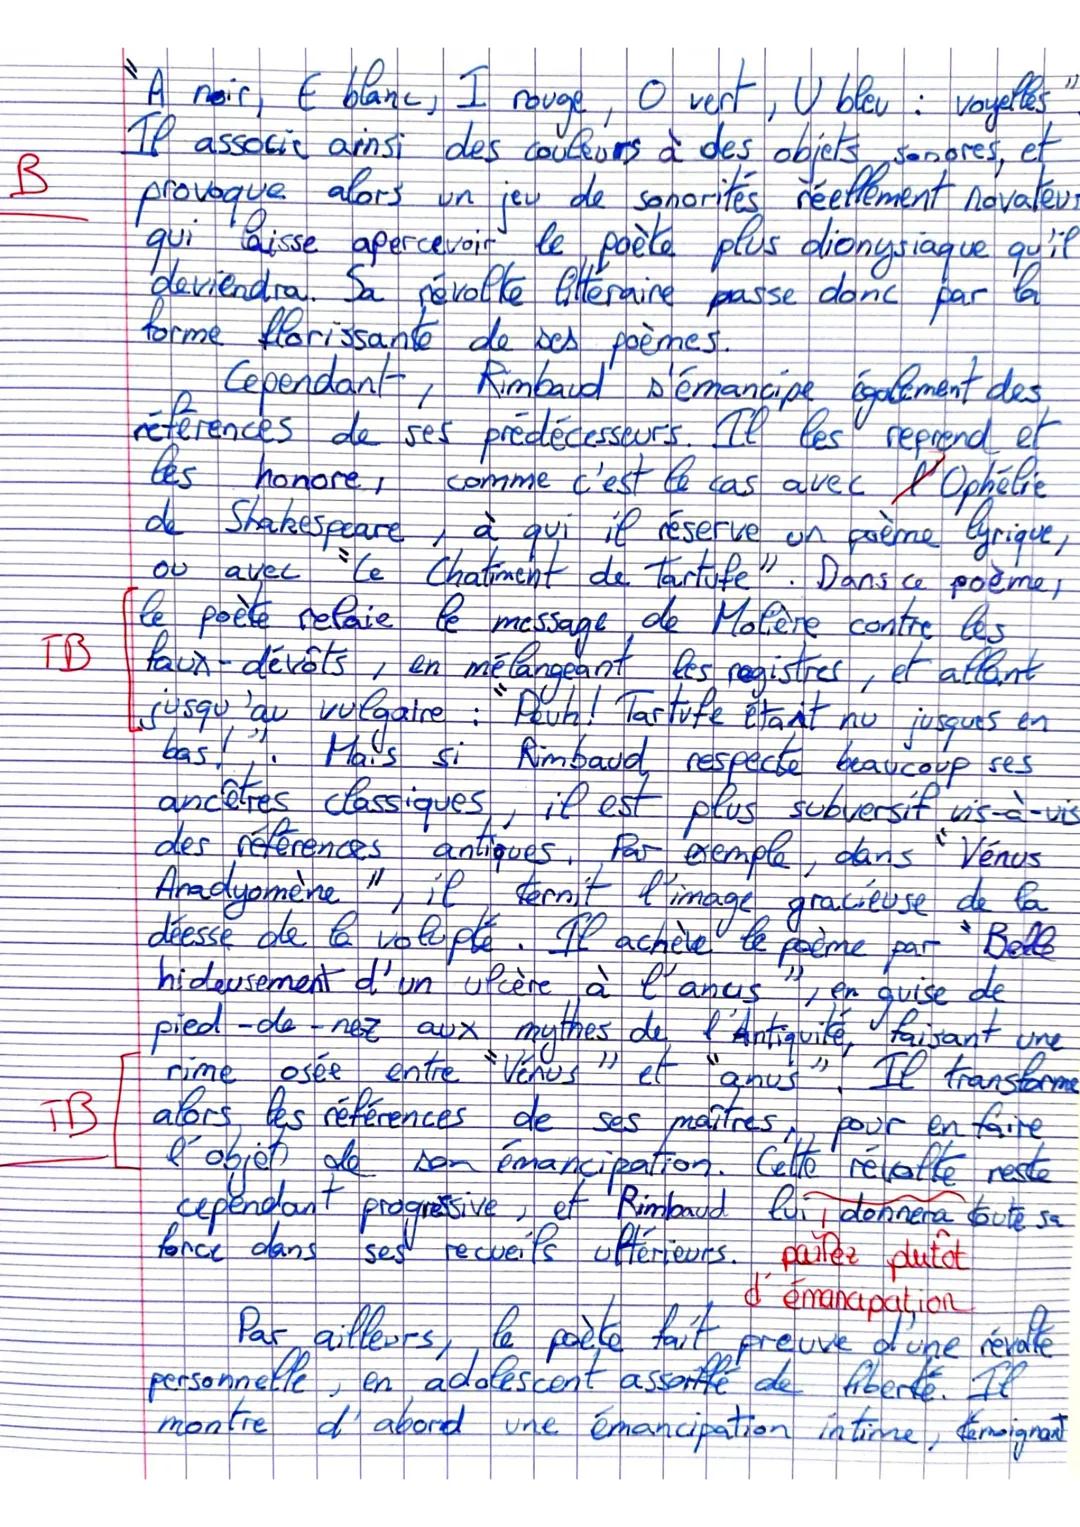 "A noir, E blanc, I rouge, O vert, U bleu : voyelles".
Il associe ainsi des couleurs à des objets sonores, et
B
provoque alors un jeu de sonorités réellement novateur
qui laisse apercevoir le poète plus dionysiaque qu'il
deviendra. Sa révolte littéraire passe donc par la
forme florissante de ses poèmes.
Cependant, Rimbaud s'émancipe également des
références de ses prédécesseurs. Il les reprend et
les honore, comme c'est le cas avec l'Ophélie
de Shakespeare, à qui il réserve un poème lyrique,
ou avec "Le Chatiment de Tartufe". Dans ce poème,
le poète relaie le message de Molière contre les
TB
faux-dévôts, en mélangeant les registres, et allant
jusqu'au vulgaire : "Peuh! Tartufe était nu jusques en
bas!". Mais si Rimbaud respecte beaucoup ses
ancêtres classiques, il est plus subversif vis-à-vis
des références antiques. Par exemple, dans "Vénus
Anadyomène", il ternit l'image gracieuse de la
déesse de la volupté. Il achève le poème par "Belle
hideusement d'un ulcère à l'anus", en guise de
pied-de-nez aux mythes de l'Antiquité, faisant une
rime osée entre "Vénus" et "anus". Il transforme
TB
alors les références de ses maîtres, pour en faire
l'objet de son émancipation. Cette révolte reste
cependant progressive, et Rimbaud lui donnera toute sa
force dans ses recueils ultérieurs.
parlez plutôt
d'émancipation
Par ailleurs, le poète fait preuve d'une révolte
personnelle, en adolescent assoiffé de liberté. Il
montre d'abord une émancipation intime, témoignant